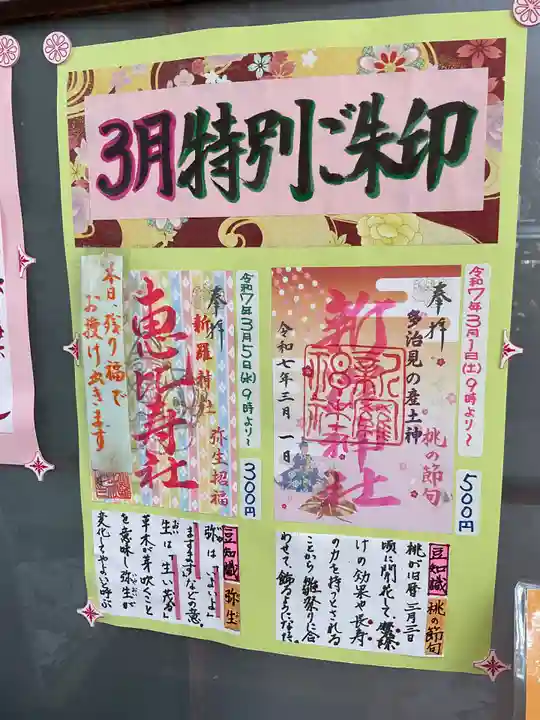 3月特別ご朱印
令和7年3月1日(土)9時より〜
500円
奉拝
多治見の産土神
桃の節句
新羅神社
令和七年三月一日
令和7年3月5日(水)9時より〜
300円
奉拝
新羅神社
弥生招福
恵比寿社
本日、残り福で
お授け出来ます
豆知識 桃の節句
桃が旧暦三月三日
頃に開花して、
けの効果や長寿
の力を持つとされる
ことから雛祭りに合
わせて飾るようになった。
豆知識 弥生
弥は「いよいよ」
「ますます」などの意。
生は「生い茂る」
草木が芽吹くこと
を意味し弥生が
変化してやよいと呼ぶ